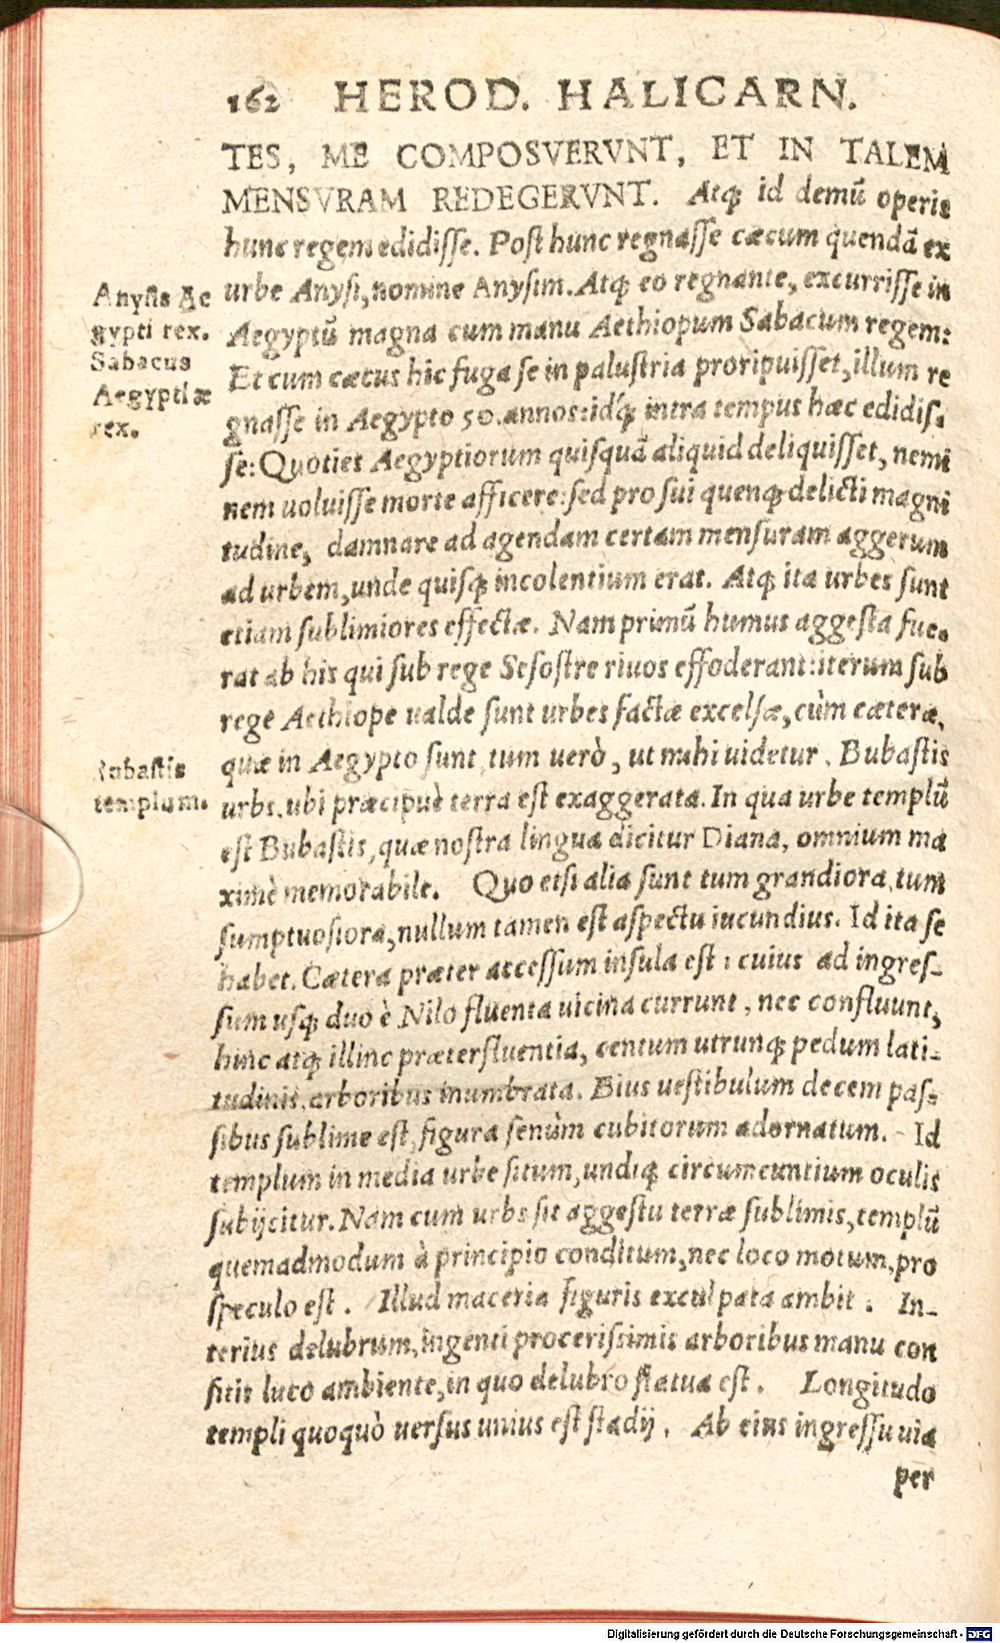 162 HEROD. HALICARN.
TES, ME COMPOSVERVNT, ET IN TALEM
MENSVRAM REDEGERVNT. Atq́; id demū operis
hunc regem edidisse. Post hunc regnasse cæcum quendā ex
urbe Anysi, nomine Anysim. Atq́; eo regnante, excurrisse in
Aegyptū magna cum manu Aethiopum Sabacum regem:
Et cum cæcus hic fuga se in palustria proripuisset, illum re
gnasse in Aegypto 50. annos: idq́; intra tempus hæc edidis-
se: Quoties Aegyptiorum quisquā aliquid deliquisset, nemi
nem uoluisse morte afficere: sed pro sui quenq; delicti magni
tudine, damnare ad agendam certam mensuram aggerum
ad urbem, unde quisq; incolentium erat. Atq; ita urbes sunt
etiam sublimiores effectæ. Nam primū humus aggesta fue-
rat ab his qui sub rege Sesostre riuos effoderant: iterum sub
rege Aethiope ualde sunt urbes factæ excelsæ, cùm cæteræ,
quæ in Aegypto sunt, tum uerò, ut mihi uidetur, Bubastis
urbs, ubi præcipuè terra est exaggerata. In qua urbe templū
est Bubastis, quæ nostra lingua dicitur Diana, omnium ma
ximè memorabile. Quo etsi alia sunt tum grandiora, tum
sumptuosiora, nullum tamen est aspectu iucundius. Id ita se
habet. Cætera præter accessum insula est: cuius ad ingres-
sum usq; duo è Nilo fluenta uicina currunt, nec confluunt,
hinc atq; illinc præterfluentia, centum utrunq; pedum lati-
tudinis, arboribus inumbrata. Eius uestibulum decem pas-
sibus sublime est, figura senûm cubitorum adornatum. Id
templum in media urbe situm, undiq; circumeuntium oculis
subijcitur. Nam cum urbs sit aggestu terræ sublimis, templū
quemadmodum à principio conditum, nec loco motum, pro
speculo est. Illud maceria figuris exculpata ambit. In-
terius delubrum, ingenti procerissimis arboribus manu con
sitis luco ambiente, in quo delubro statua est. Longitudo
templi quoquò uersus unius est stadij. Ab eius ingressu uia
per
Anysis Ae
gypti rex.
Sabacus
Aegypti æ
rex.
Bubastis
templum.
Digitalisierung gefördert durch die Deutsche Forschungsgemeinschaft - DFG